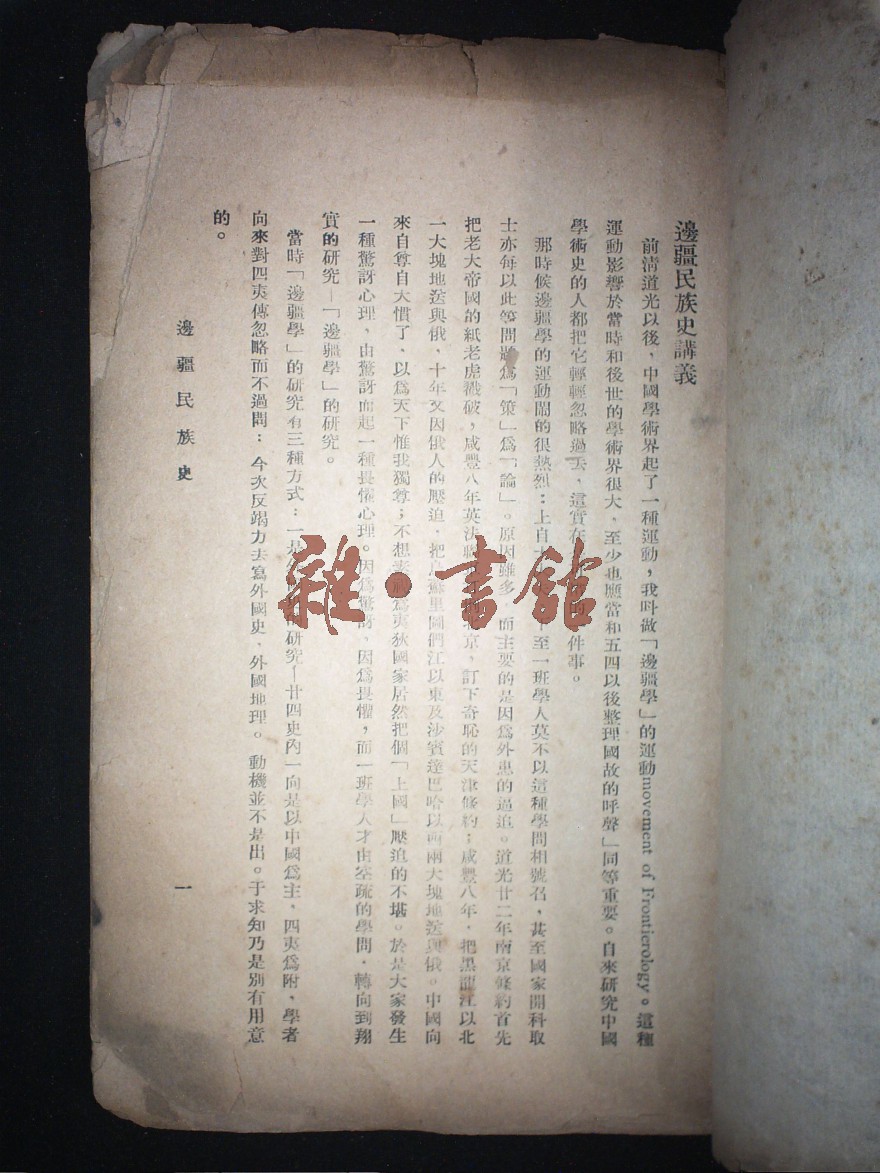 邊疆民族史講義
前清道光以後，中國學術界起了一種運動，我叫做「邊疆學」的運動movement of Frontierology。這種
運動影響於當時和後世的學術界很大，至少也應當和五四以後整理國故的呼聲」同等重要。自來研究中國
學術史的人都把它輕輕忽略過去，這實在 件事。
那時候邊疆學的運動鬧的很熱烈：上自 至一班學人莫不以這種學問相號召，甚至國家開科取
士亦每以此等問題爲「策」爲「論」。原因雖多，而主要的是因爲外患的逼迫。道光廿二年南京條約首先
把老大帝國的紙老虎戳破，咸豐八年英法 京，訂下奇恥的天津條約；咸豐八年，把黑龍江以北
一大塊地送與俄，十年又因俄人的壓迫，把烏蘇里圖們江以東及沙賓達巴哈以西兩大塊地送與俄。中國向
來自尊自大慣了，以爲天下惟我獨尊；不想素 爲夷狄國家居然把個「上國」壓迫的不堪。於是大家發生
一種驚訝心理，由驚訝而起一種畏懼心理。因爲驚訝，因爲畏懼，而一班學人才由空疏的學問，轉向到翔
實的研究—「邊疆學」的研究。
當時「邊疆學」的研究有三種方式：一是 研究—廿四史內一向是以中國爲主，四夷爲附，學者
向來對四夷傳忽略而不過問：今次反竭力去寫外國史、外國地理。動機並不是出。于求知乃是別有用意
的。
邊疆民族史
一
雜·書館